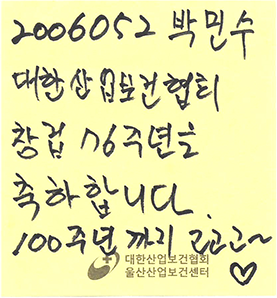 2006052 박민수
대한산업보건협회
창립 76주년을
축하합니다.
100주년 까지 고고고~
대한산업보건협회
울산산업보건센터